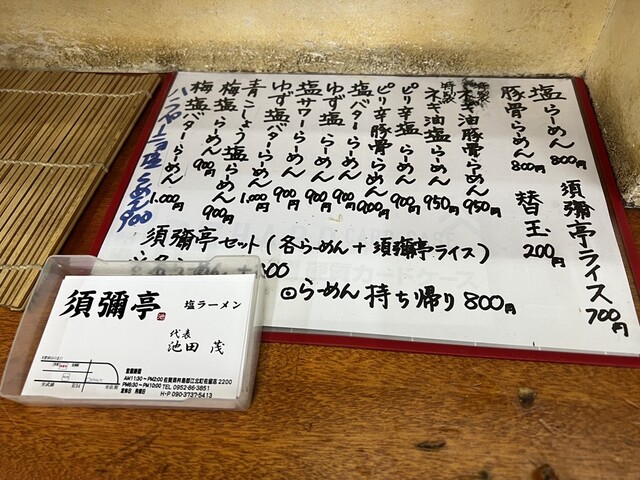 塩らーめん 800円
豚骨らーめん 800円
ネギ油豚骨らーめん 950円
ネギ油塩らーめん 950円
ピリ辛塩らーめん 900円
ピリ辛豚骨らーめん 900円
塩バターらーめん 900円
ゆず塩らーめん 900円
塩サワーらーめん 900円
ゆず塩バターらーめん 1.000円
青こしょう塩らーめん 900円
梅塩らーめん 900円
梅塩バターらーめん 1.000円
らーめん 900
須彌亭ライス 700円
替玉 200円
須彌亭セット(各らーめん+須彌亭ライス)
回らーめん持ち帰り 800円
須彌亭 塩ラーメン
代表
池田 茂
営業時間
AM11:30~PM2:00 佐賀県杵島郡江北町佐留志2200
PM6:30~PM10:00 TEL 0952-86-3851
定休日 月曜日 H・P 090-3737-5413